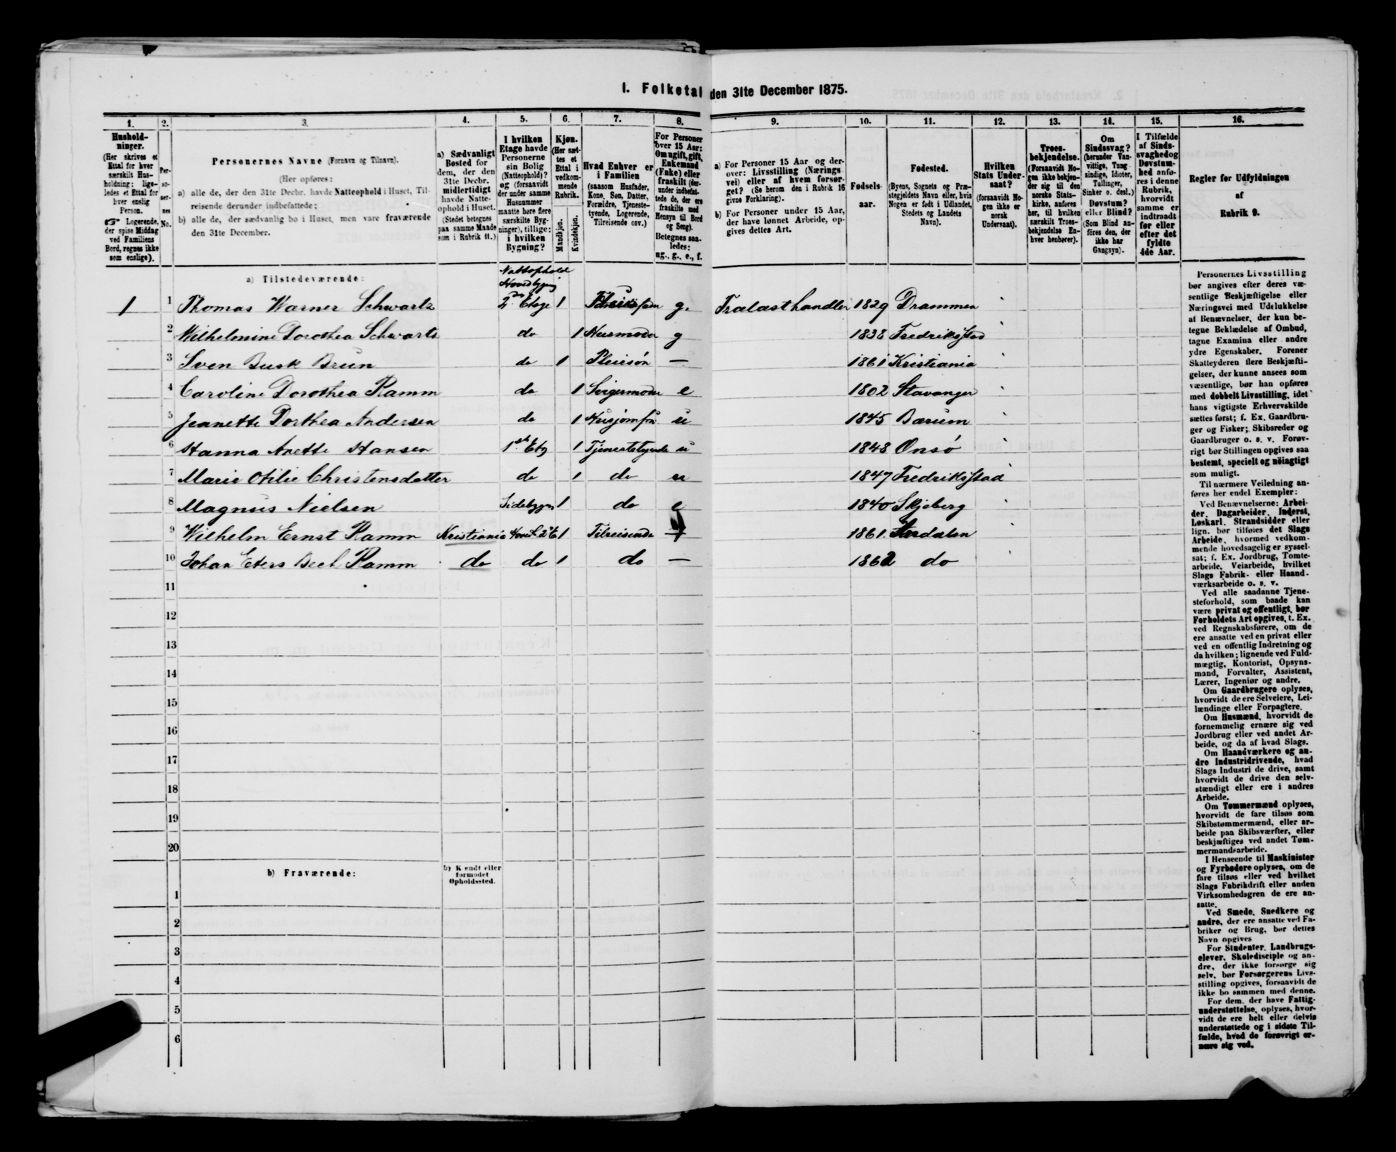 I. Folketal den 31te December 1875.
1. 2. 3. 4. 5. 6. 7. 8. 9. 10. 11. 12. 13. 14. 15. 16.
Hushold-
ninger.
(Her skrives et
Ettal for hver
særskilt Hus-
holdning; lige-
ledes et Ettal for
hver enslig
Person.
☞ Logerende,
der spise Middag
ved Familiens
Bord, regnes ikke
som enslige).
Per-
so-
ner-
nes
No.
Personernes Navne (Fornavn og Tilnavn).
(Her opføres:
a) alle de, der den 31te Decbr. havde Natteophold i Huset, Til-
reisende derunder indbefattede;
b) alle de, der sædvanlig bo i Huset, men vare fraværende
den 31te December.
a) Sædvanligt
Bosted for
dem, der den
31te Decbr.
midlertidigt
havde Natte-
ophold i Huset.
(Stedet betegnes
paa samme Maade
som i Rubrik 11.)
I hvilken
Etage havde
Personerne
sin Bolig
(Natteophold)?
og (forsaavidt
der under samme
Husnummer
maatte høre flere
særskilte Byg-
ninger), tillige:
i hvilken
Bygning?
Kjøn.
(Her sæt-
tes et
Ettal i
vedkom-
mende
Rubrik.
Mandkjøn.
Kvindekjøn.
Hvad Enhver er
i Familien
(saasom Husfader,
Kone, Søn, Datter,
Forældre, Tjeneste-
tyende, Logerende,
Tilreisende osv.).
For Personer
over 15 Aar:
Om ugift, gift,
Enkemand
(Enke) eller
fraskilt (der-
under indbefat-
tede de, der ere
fraskilte med
Hensyn til Bord
og Seng).
Betegnes saa-
ledes:
ug., g., e., f.
a) For Personer 15 Aar og der-
over: Livsstilling (Nærings-
vei) eller af hvem forsør-
get? (Se herom den i Rubrik 16
givne Forklaring).
b) For Personer under 15 Aar,
der have lønnet Arbeide, op-
gives dettes Art.
Fødsels-
aar.
Fødested.
(Byens, Sognets og Præ-
stegjeldets Navn eller, hvis
Nogen er født i Udlandet,
Stedets og Landets
Navn).
Hvilken
Stats Under-
saat?
(forsaavidt No-
gen ikke er
norsk
Undersaat).
Troes-
bekjendelse.
(Forsaavidt No-
gen ikke bekjen-
der sig til den
norske Stats-
kirke, anføres
her, til hvilken
særskilt Troes-
bekjendelse En-
hver henhører).
Om
Sindssvag?
(herunder Van-
vittige, Tung-
sindige, Idioter,
Tullinger,
Sinker o. desl.)
Døvstum?
eller Blind?
(Som Blind an-
føres den, der
ikke har
Gangsyn).
I Tilfælde
af Sinds-
svaghed og
Døvstum-
hed anfø-
res i denne
Rubrik,
hvorvidt
samme er
indtraadt
før eller
efter det
fyldte
4de Aar.
Regler for Udfyldningen
af
Rubrik 9.
a) Tilstedeværende:
Natophold
Hovedbygn
1 1 Thomas Warner Schwartz 2den Etage 1 g. Trælasthandler 1829 Drammen
2 Wilhelmine Dorothea Schwartz do 1 Husmoder g 1838 Fredrikstad
3 Sven Busk Bruun do 1 Pleiesøn — 1861 Kristiania
4 Caroline Dorothea Ramm do 1 Svigermoder e 1802 Stavanger
5 Jeanette Dorthea Andersen do 1 Husjomfru u 1845 Bærum
6 Hanna Anette Hansen 1st Etg 1 Tjenestetyende u 1848 Onsø
7 Marie Otilie Christensdatter do 1 do u 1847 Fredrikstad
8 Magnus Nielsen Sidebygn 1 do e 1840 Skjeberg
9 Wilhelm Ernst Ramm Kristiania 1 Tilreisende 1861
10 Johan Eters Ramm do do 1 do — 1862 do
11
12
13
14
15
16
17
18
19
20
b) Fraværende:
b) Kjendt eller
formodet
Opholdssted.
1
2
3
4
5
6
Personernes Livsstilling
bør angives efter deres væ-
sentlige Beskjæftigelse eller
Næringsvei med Udelukkelse
af Benævnelser, der kun be-
tegne Beklædelse af Ombud,
tagne Examina eller andre
ydre Egenskaber. Forener
Skatteyderen flere Beskjæfti-
gelser, der kunne ansees som
væsentlige, bør han opføres
med dobbelt Livsstilling, idet
hans vigtigste Erhvervskilde
sættes først; f. Ex. Gaardbru-
ger og Fisker; Skibsreder og
Gaardbruger o. s. v. Forøv-
rigt bør Stillingen opgives saa
bestemt, specielt og nøiagtigt
som muligt.
Til nærmere Veiledning an-
føres her endel Exempler:
Ved Benævnelserne: Arbei-
der, Dagarbeider, Inderst,
Løskarl, Strandsidder eller
lign. bør tilføies det Slags
Arbeide, hvormed vedkom-
mende hovedsagelig er syssel-
sat; f. Ex. Jordbrug, Tomte-
arbeide, Veiarbeide, hvilket
Slags Fabrik- eller Haand-
værksarbeide o. s. v.
Ved alle saadanne Tjene-
steforhold, som baade kan
være privat og offentligt, bør
Forholdets Art opgives, t. Ex.
ved Regnskabsførere, om de
ere ansatte ved en privat eller
ved en offentlig Indretning og
da hvilken; lignende ved Fuld-
mægtig, Kontorist, Opsyns-
mand, Forvalter, Assistent,
Lærer, Ingeniør og andre.
Om Gaardbrugere oplyses,
hvorvidt de ere Selveiere, Lei-
lændinge eller Forpagtere.
Om Husmænd, hvorvidt de
fornemmelig ernære sig ved
Jordbrug eller ved andet Ar-
beide, og da af hvad Slags.
Om Haandværkere og an-
dre Industridrivende, hvad
Slags Industri de drive, samt
hvorvidt de drive den selv-
stændigt eller ere i andres
Arbeide.
Om Tømmermænd oplyses,
hvorvidt de fare tilsøs som
Skibstømmermænd, eller ar-
beide paa Skibsværfter, eller
beskjæftiges ved andet Tøm-
mermandsarbeide.
I Henseende til Maskinister
og Fyrbødere oplyses, om de
fare tilsøs eller ved hvilket
Slags Fabrikdrift eller anden
Virksomhedsgren de ere an-
satte.
Ved Smede, Snedkere og
andre, der ere ansatte ved Fa-
briker og Brug, bør dettes
Navn opgives
For Studenter, Landbrugs-
elever, Skoledisciple og an-
dre, der ikke forsørge sig
selv, bør Forsørgerens Livs-
stilling opgives, forsaavidt de
ikke bo sammen med denne.
For dem, der have Fattig-
understøttelse, oplyses, hvor-
vidt de ere helt eller delvis
understøttede og i sidste Til-
fælde, hvad de forøvrigt er-
nære sig ved.